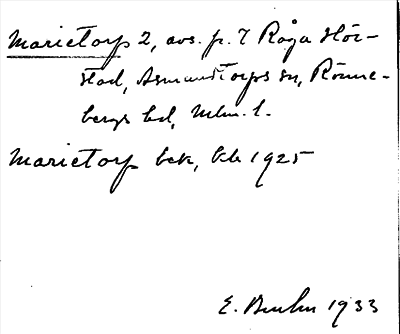 Marietorp 2, avs. fr. 7 Råga Hör-
stad, Asmundtorps sn, Rönne-
bergs hd, Mlm. l.
Marietorp bek, Ek 1925
E. Bruhn 1933